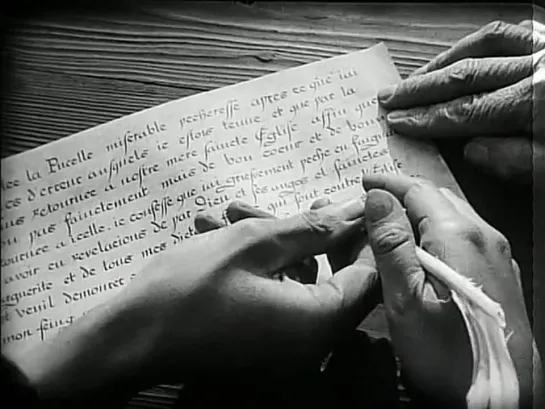 la Pucelle misérable pecheresse apres ce que iai
d'erreur ausquels ie estois tenue et que par la
retournee a nostre mere saincte Eglise affin que
pas fainctement mais de bon coeur et de
tournee a icelle, ie confesse que iai griefvement peche en
avoir eu revelacions de par Dieu et ses anges et sainctes
arguerite et de tous mes qui sont Eglise
veuil demourer
mon